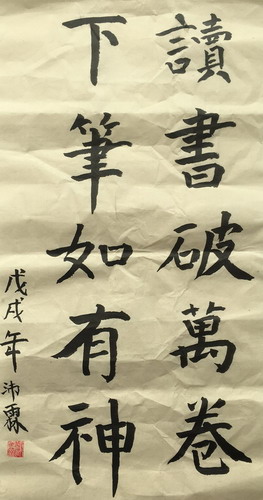 讀書破萬卷
下筆如有神
戊戌年沛霖